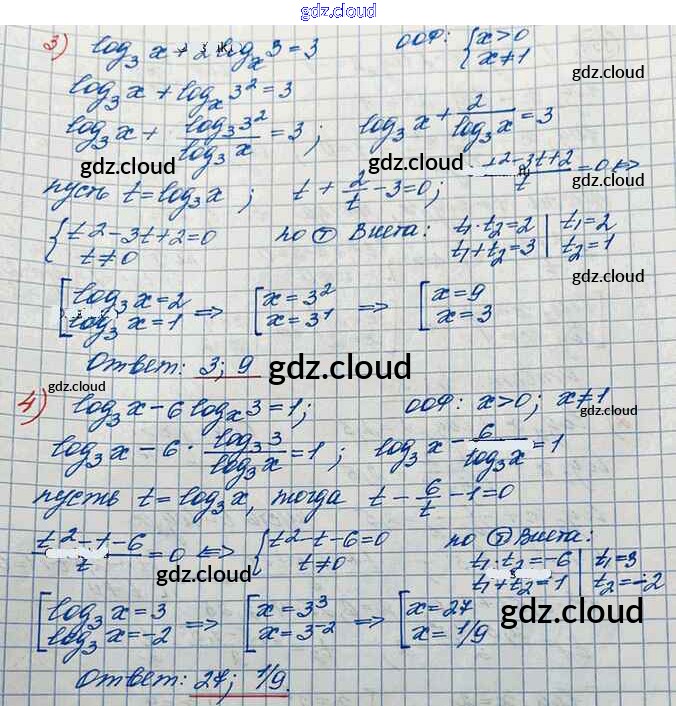 gdz.cloud
3) log₃ x + 2 logₓ 3 = 3     ООФ: { x > 0
x ≠ 1
gdz.cloud
log₃ x + logₓ 3² = 3
log₃ x + log₃ 3² / log₃ x = 3 ;     log₃ x + 2 / log₃ x = 3
gdz.cloud
gdz.cloud
gdz.cloud
пусть t = log₃ x ;     t + 2/t − 3 = 0 ;     t² − 3t + 2 / t = 0 ⇔
{ t² − 3t + 2 = 0     по т Виета:     t₁ · t₂ = 2 | t₁ = 2
t ≠ 0     t₁ + t₂ = 3 | t₂ = 1
gdz.cloud
[ log₃ x = 2 ⇒ [ x = 3² ⇒ [ x = 9
log₃ x = 1     x = 3¹     x = 3
Ответ: 3; 9
gdz.cloud
gdz.cloud
4) log₃ x − 6 logₓ 3 = 1 ;     ООФ: x > 0 ; x ≠ 1
gdz.cloud
log₃ x − 6 · log₃ 3 / log₃ x = 1 ;     log₃ x − 6 / log₃ x = 1
пусть t = log₃ x, тогда t − 6/t − 1 = 0
t² − t − 6 / t = 0 ⇔ { t² − t − 6 = 0     по т Виета:
t ≠ 0     t₁ · t₂ = −6 | t₁ = 3
t₁ + t₂ = 1 | t₂ = −2
gdz.cloud
gdz.cloud
[ log₃ x = 3 ⇒ [ x = 3³ ⇒ [ x = 27
log₃ x = −2     x = 3⁻²     x = 1/9
Ответ: 27; 1/9.
gdz.cloud